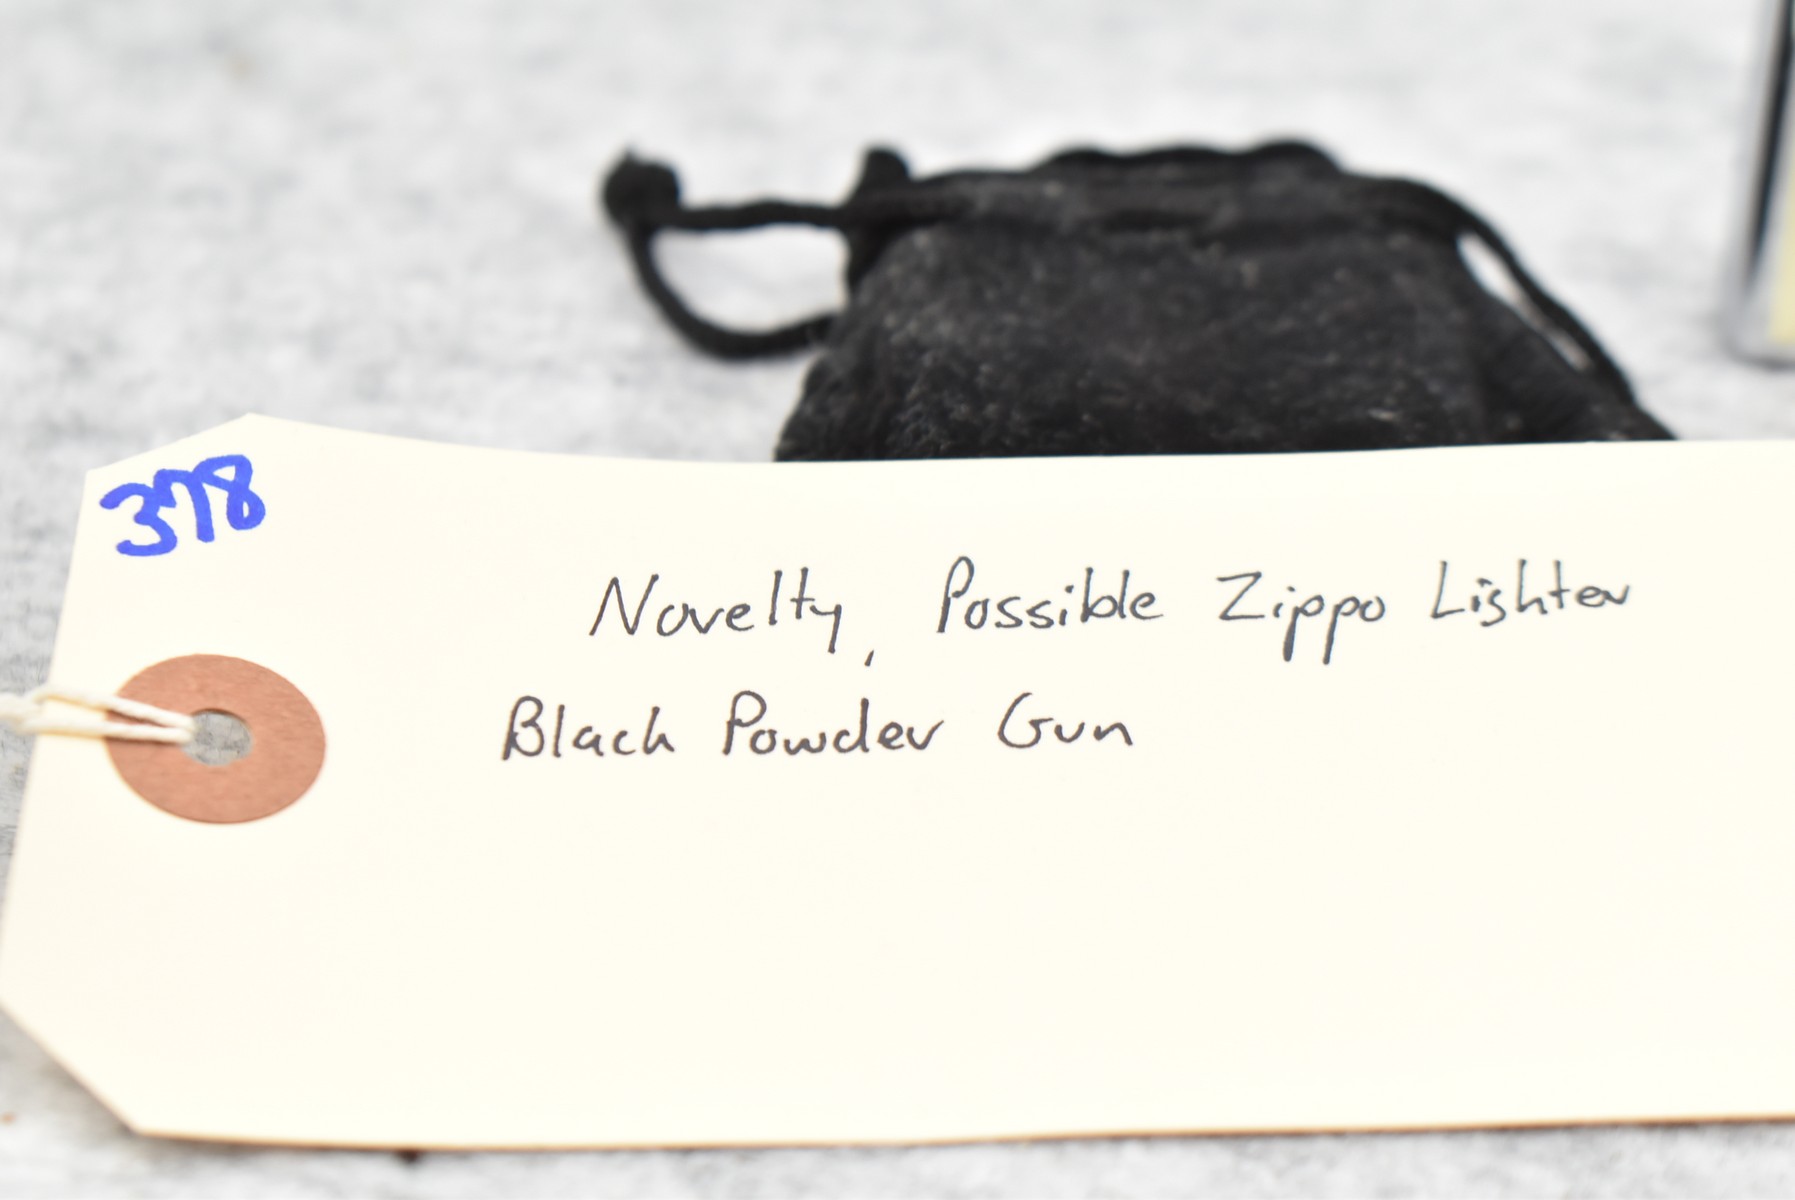 378
Novelty, Possible Zippo Lighter
Black Powder Gun